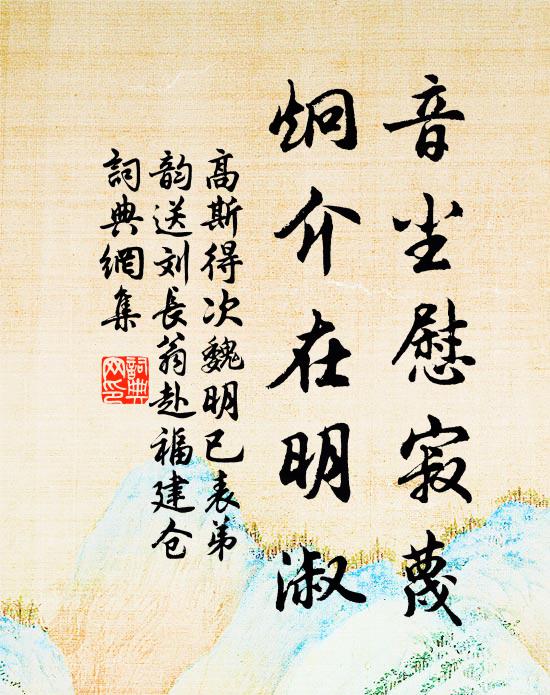 音尘慰寂蔑
炯介在明淑
高斯得次魏明已表弟
韵送刘长翁赴福建仓
詞典網集
詞典网印